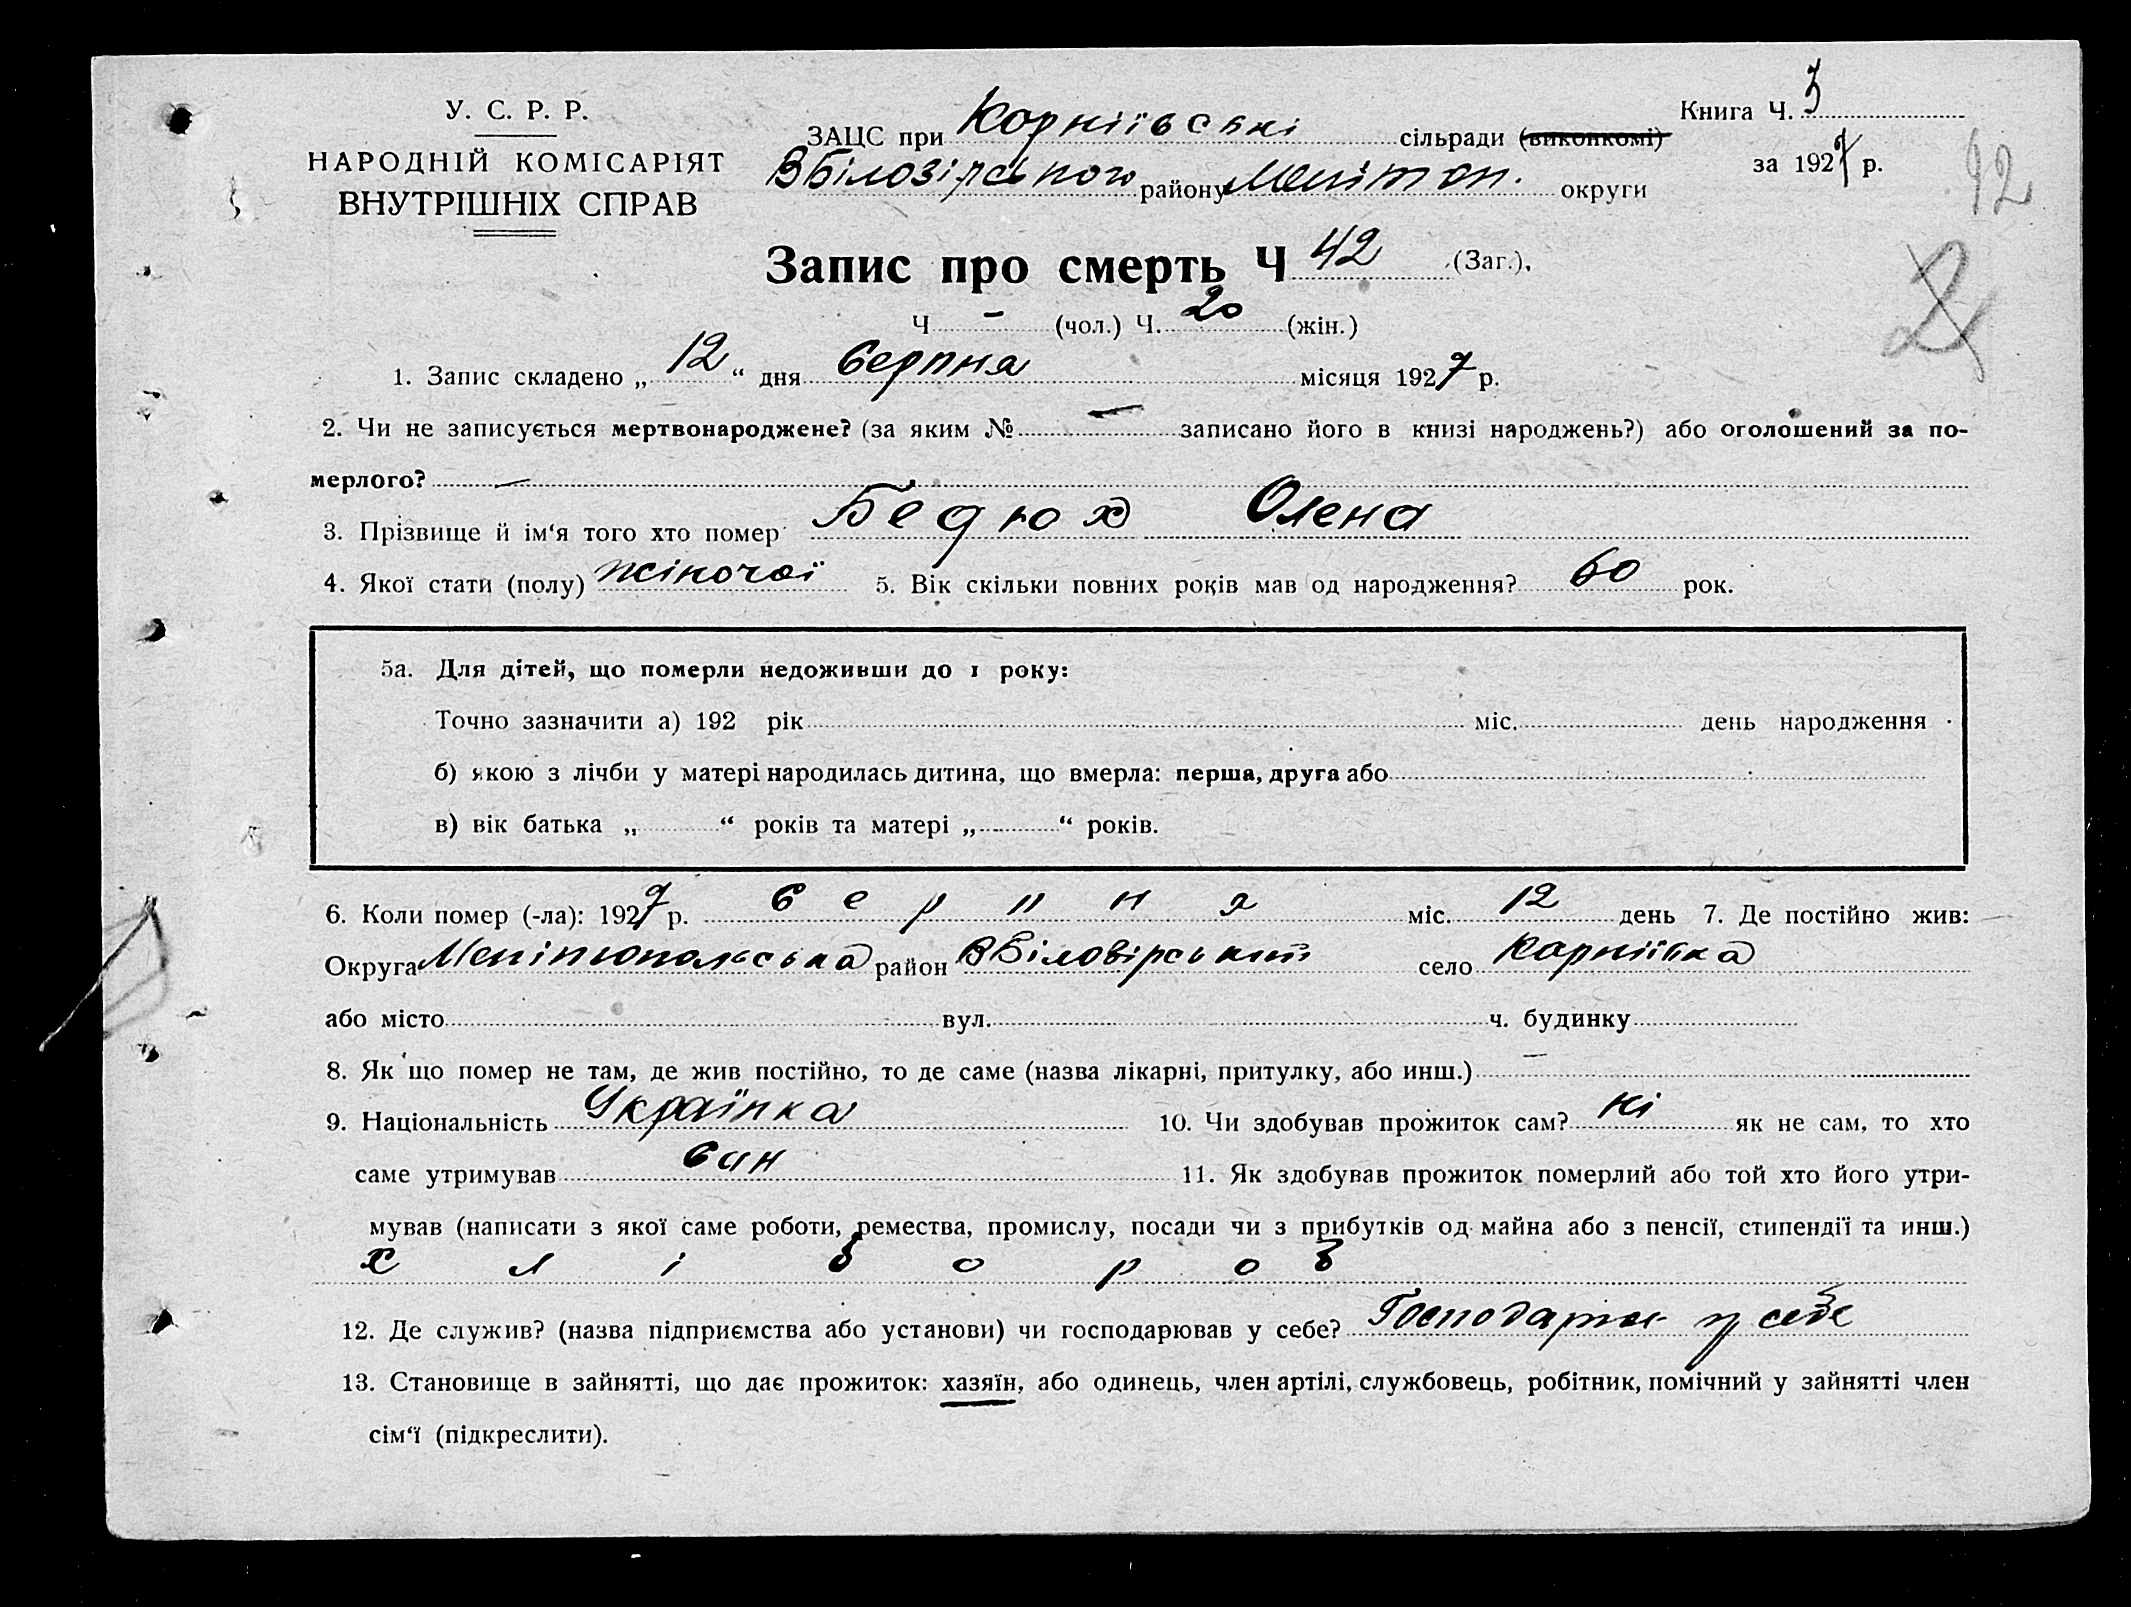 У. С. Р. Р.
НАРОДНІЙ КОМІСАРІЯТ
ВНУТРІШНІХ СПРАВ
ЗАЦС при Корніївські сільради (виконкомі)
ВБілозірського району Мелітоп. округи
Книга Ч. 3
за 1927 р.
92
Запис про смерть Ч 42 (Заг.),
Ч - (чол.) Ч. 20 (жін.)
1. Запис складено „ 12 “ дня Серпня місяця 1927 р.
2. Чи не записується мертвонароджене? (за яким № — записано його в книзі народжень?) або оголошений за по-
мерлого? —
3. Прізвище й ім‘я того хто помер Бедюх Олена
4. Якої стати (полу) жіночої 5. Вік скільки повних років мав од народження? 60 рок.
5а. Для дітей, що померли недоживши до 1 року:
Точно зазначити а) 192 рік міс. день народження
б) якою з лічби у матері народилась дитина, що вмерла: перша, друга або
в) вік батька „ “ років та матері „ “ років.
6. Коли помер (-ла): 1927 р. серпня міс. 12 день 7. Де постійно жив:
Округа Мелітопольська район ВБілозірський село Корніївка
або місто вул. ч. будинку
8. Як що помер не там, де жив постійно, то де саме (назва лікарні, притулку, або инш.) —
9. Національність Українка 10. Чи здобував прожиток сам? ні як не сам, то хто
саме утримував син 11. Як здобував прожиток померлий або той хто його утри-
мував (написати з якої саме роботи, ремества, промислу, посади чи з прибутків од майна або з пенсії, стипендії та инш.)
хлібороб
12. Де служив? (назва підприємства або установи) чи господарював у себе? у себе
13. Становище в зайнятті, що дає прожиток: хазяїн, або одинець, член артілі, службовець, робітник, помічний у зайнятті член
сім‘ї (підкреслити).